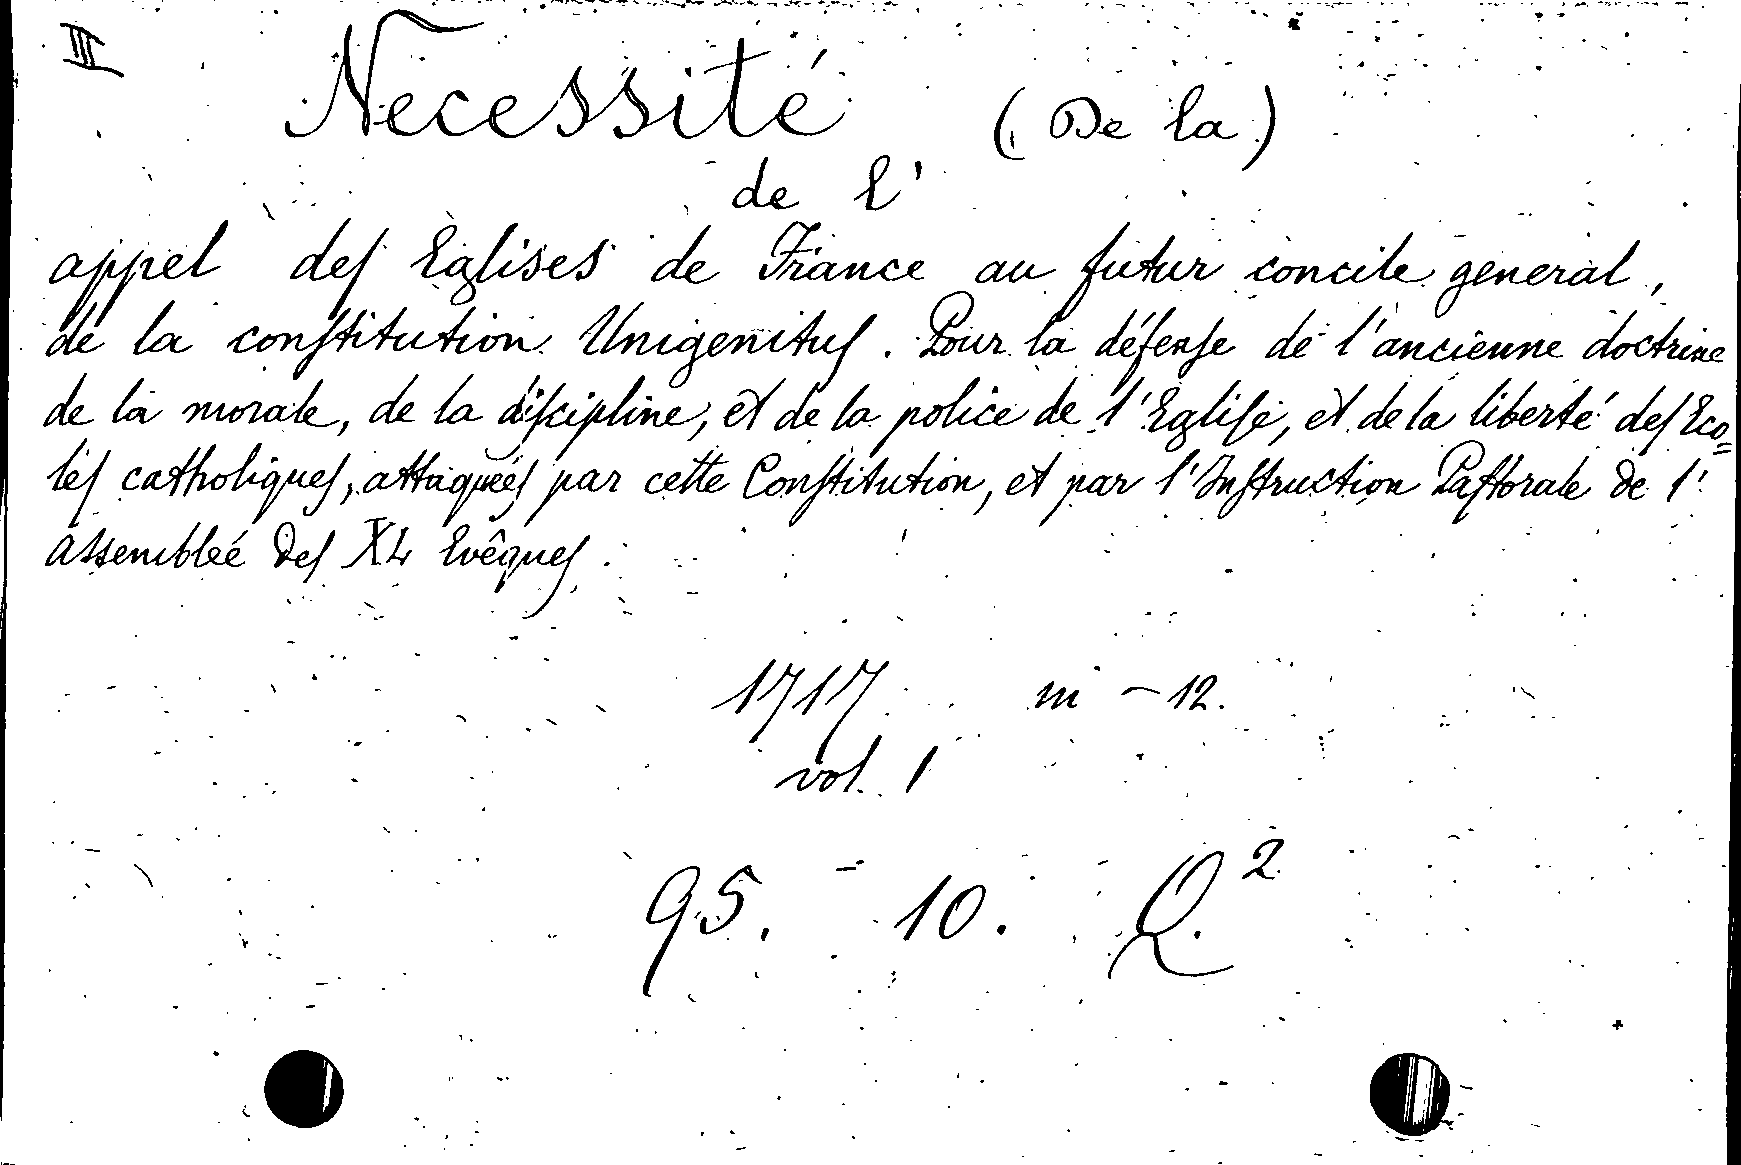 III
Necessité (De la)
de l'
appel des Eglises de France au futur concile general,
de la constitution Unigenitus. Pour la défense de l'ancienne doctrine
de la morale, de la discipline, et de la police de l'Eglise, et de la liberté des Eco=
les catholiques, attaquées par cette Constitution, et par l'Instruction Pastorale de l'
assembleé des XL Evêques.
1717 in - 12.
vol. 1
95. - 10. Q.²